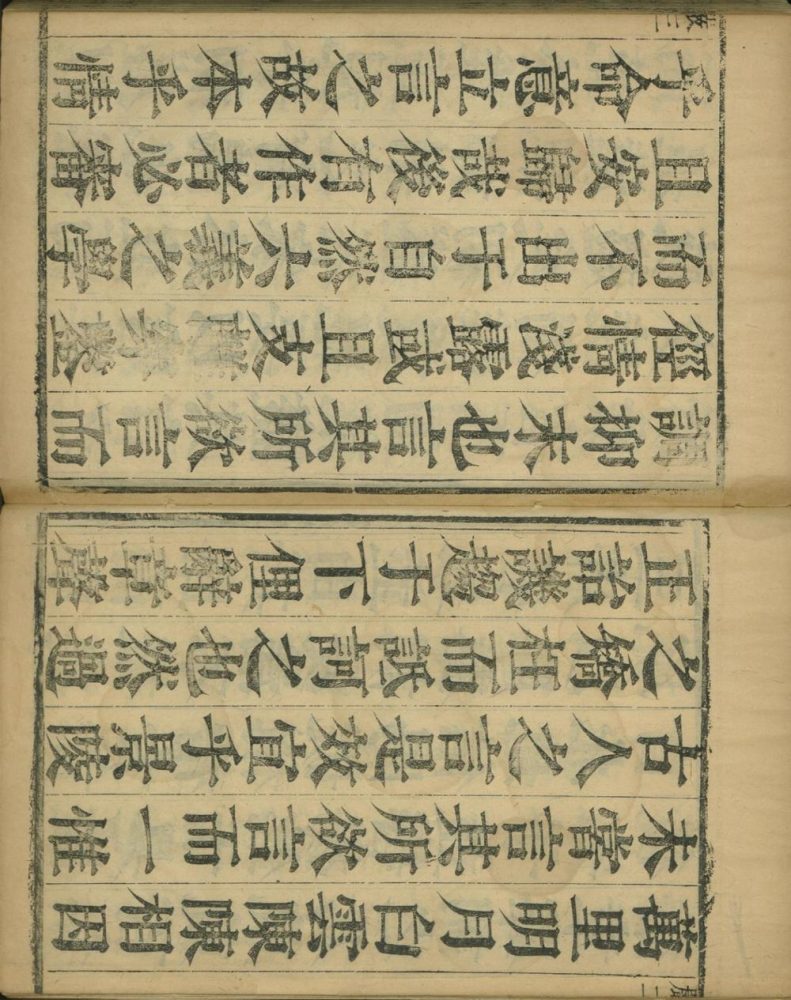 萬里明月白雲陳陳相因
未嘗言其所欲言而一惟
古人之言是效宜乎景陵
之矯枉而詆訶之也然過
正詒譏趨于下俚辭章聲
調抑末也言其所欲言而
徑情淺露或且支離穿鑿
而不出于自然六義之學
且安歸哉後有作者必審
乎命意立言之故本乎情